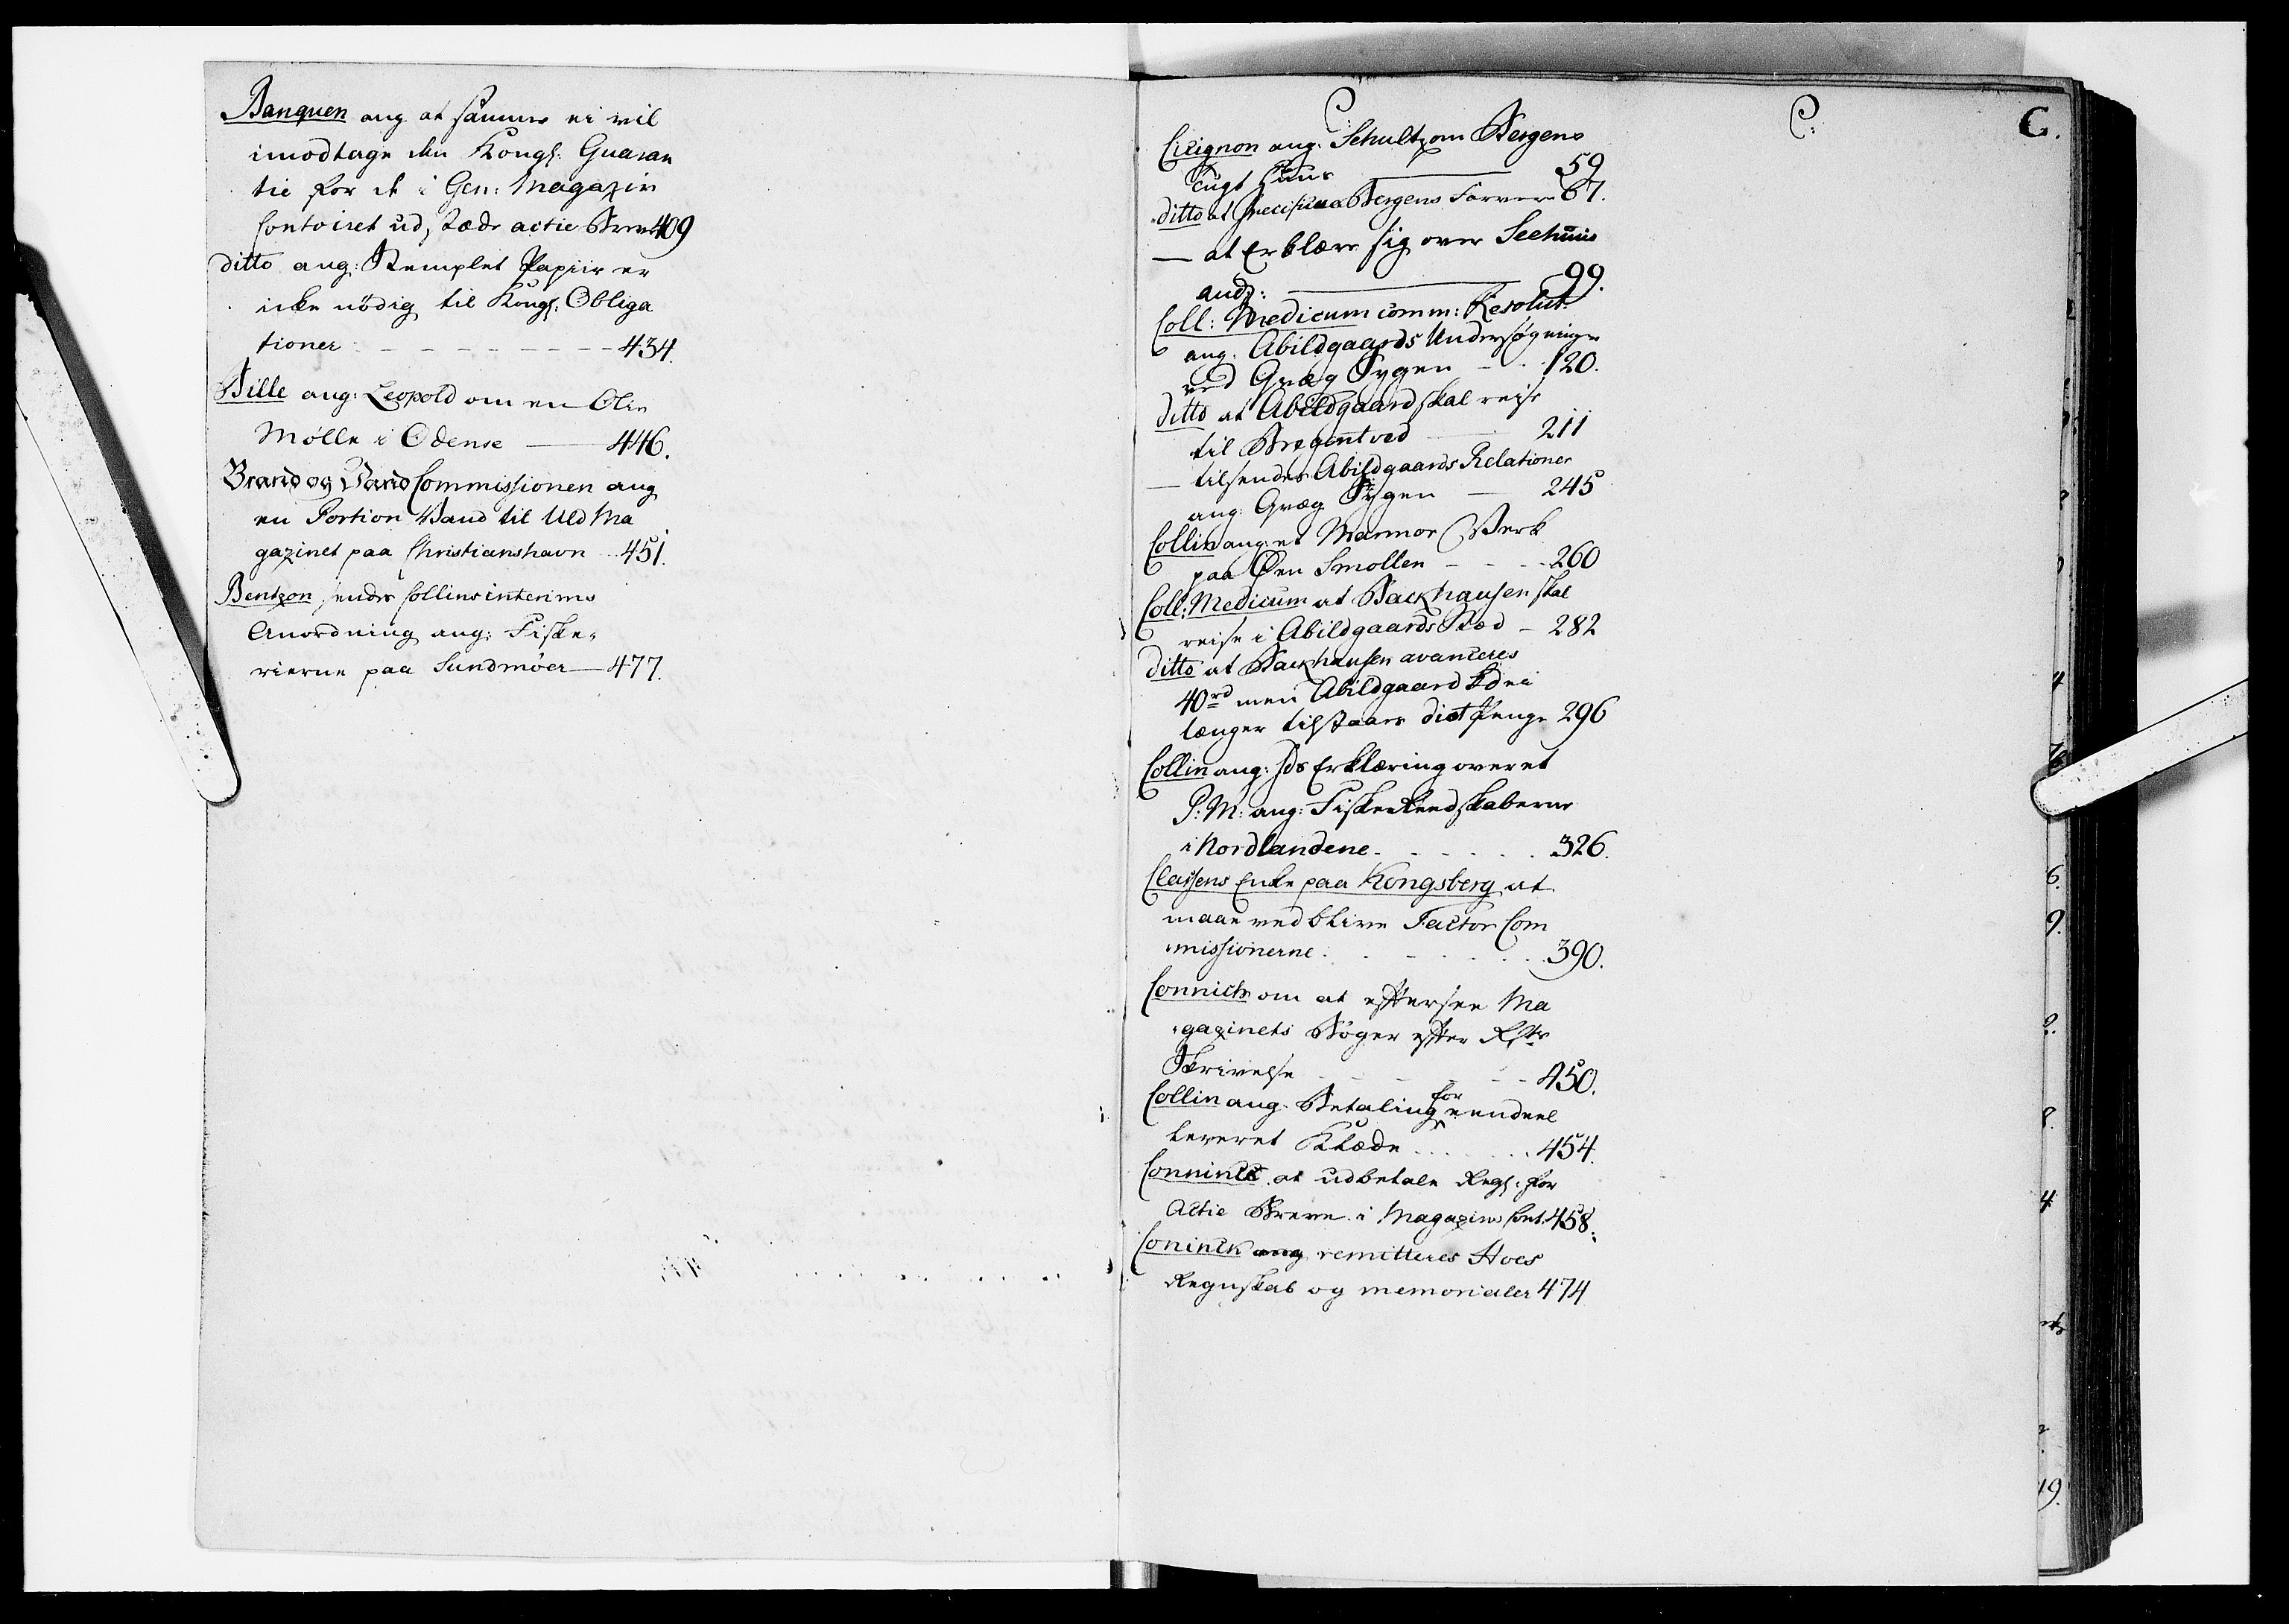 Banquen ang at samme ei vil
imodtage den Kongl: Guaran
tie for de i Gen: Magazin
Contoiret udstædte actie Breve 409
ditto ang: Stemplet Papiir er
icke nödig til Kongl: Obliga
tioner - - - - - - - - 434.
Bille ang: Leopold om en Olie
Mølle i Odense — 446.
Brand og Vand Commissionen ang
en Portion Vand til Uld Ma
gazinet paa Christianshavn - 451.
Bentzon sendes Collins interims
Anordning ang: Fiske-
rierne paa Sundmöer — 477.
C:
C:
C.
Cicignon ang: Schultz om Bergens
Tugt Huus — 59
ditto at specificere Bergens Farvere 67.
— at Erklære sig over Seehuus
and: — 99.
Coll: Medicum comm: Resolut:
ang: Abildgaards Undersøgninge
ved Qvæg Sygen - - 120.
ditto at Abildgaard skal reise
til Bregentved — 211
— tilsendes Abildgaards Relationer
ang: Qvæg Sygen — 245
Collin ang: et Marmor Verk
paa Øen Smollen - - - 260
Coll: Medicum at Backhausen skal
reise i Abildgaards Sted - 282
ditto at Backhausen avanceres
40 rd men Abildgaard ei
længer tilstaaes diæt Penge 296
Collin ang: hds Erklæring over et
P: M: ang: Fiske Reedskaberne
i Nordlandene - - - - - 326.
Classens Enke paa Kongsberg at
maae vedblive Factor Com
missionerne - - - - - 390.
Connich om at eftersee Ma
gazinets Böger efter
Skrivelse - - - - - 450.
Collin ang: Betaling for eendeel
leveret Klæde . . . . . 454.
Conninck at udbetale Regl: for
Actie Breve i Magazins Cont. 458.
Coninck ang remitteres Hoes
Regnskab og memorialer 474
4
6.
9.
2.
8.
4
19.